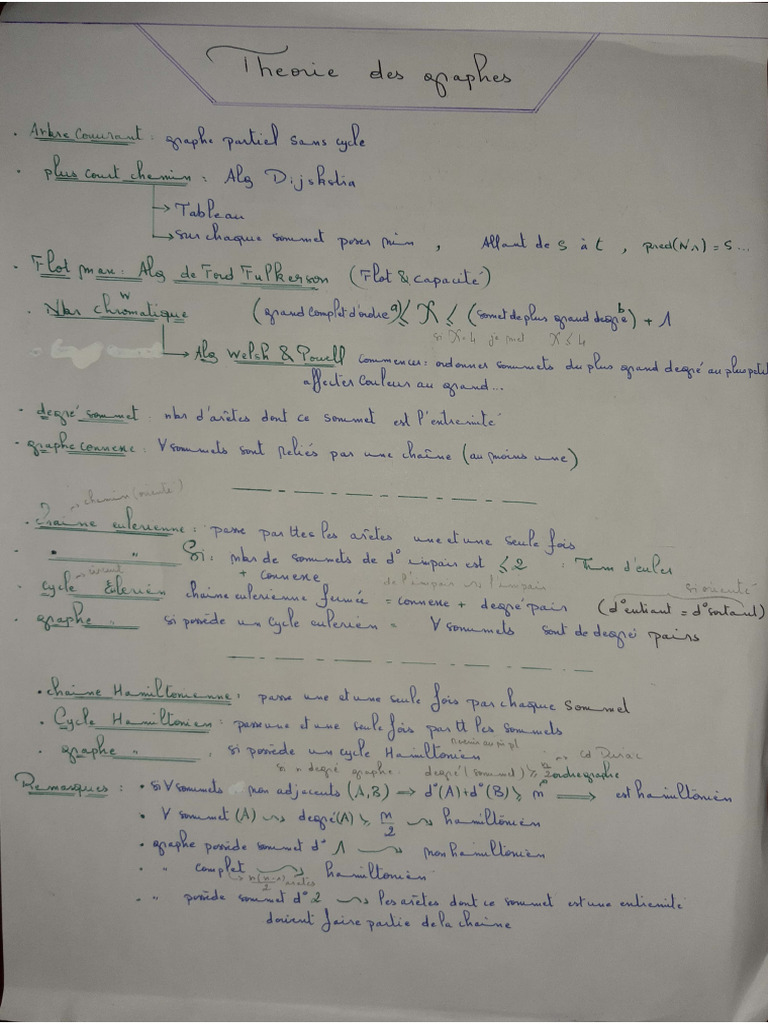 Theorie des graphes
. Arbre Couvrant : graphe partiel sans cycle
. plus court chemin : Alg Dijskstia
→ Tableau
→ Sur chaque sommet poser min , Allant de s à t , pred(N.1) = S ...
. Flot max : Alg de Ford Fulkerson (Flot & capacité)
. Nbr chromatique (grand complet d'ordre a) ≤ X ≤ (somet de plus grand degré b) + 1
si X=4 je met X ≤ 4
→ Alg Welsh & Powell commencer : ordonner sommets du plus grand degré au plus petit
affecter couleur au grand...
. degré sommet : nbr d'arêtes dont ce sommet est l'extremité
. graphe connexe : ∀ sommets sont reliés par une chaîne (au moins une)
chemin (orienté)
. Chaine eulerienne : passe par ttes les arêtes une et une seule fois
. " " Si : nbr de sommets de d° impair est ≤ 2 : Thm d'euler
+ connexe
de l'impair → l'impair
si orienté
circuit
. cycle Eulerien chaine eulerienne fermée = connexe + degré pair (d° entrant = d° sortant)
. graphe " si possède un cycle eulerien = ∀ sommets sont de degré pairs
. chaine Hamiltonienne : passe une et une seule fois par chaque sommet
. Cycle Hamiltonien : passe une et une seule fois par tt les sommets
. graphe " , si possède un cycle Hamiltonien
si n degré graphe. degré (sommet) ≥ ordre graphe
Remarques : . si ∀ sommets non adjacents (A,B) ⇒ d°(A)+d°(B) ≥ n ⟹ est hamiltonien
. ∀ sommet (A) → degré(A) ≥ n/2 → hamiltonien
. graphe possède sommet d° 1 → non hamiltonien
. " complet → hamiltonien
→ n(n-1)/2 arêtes
. " possède sommet d° 2 → les arêtes dont ce sommet est une extremité
doivent faire partie de la chaine